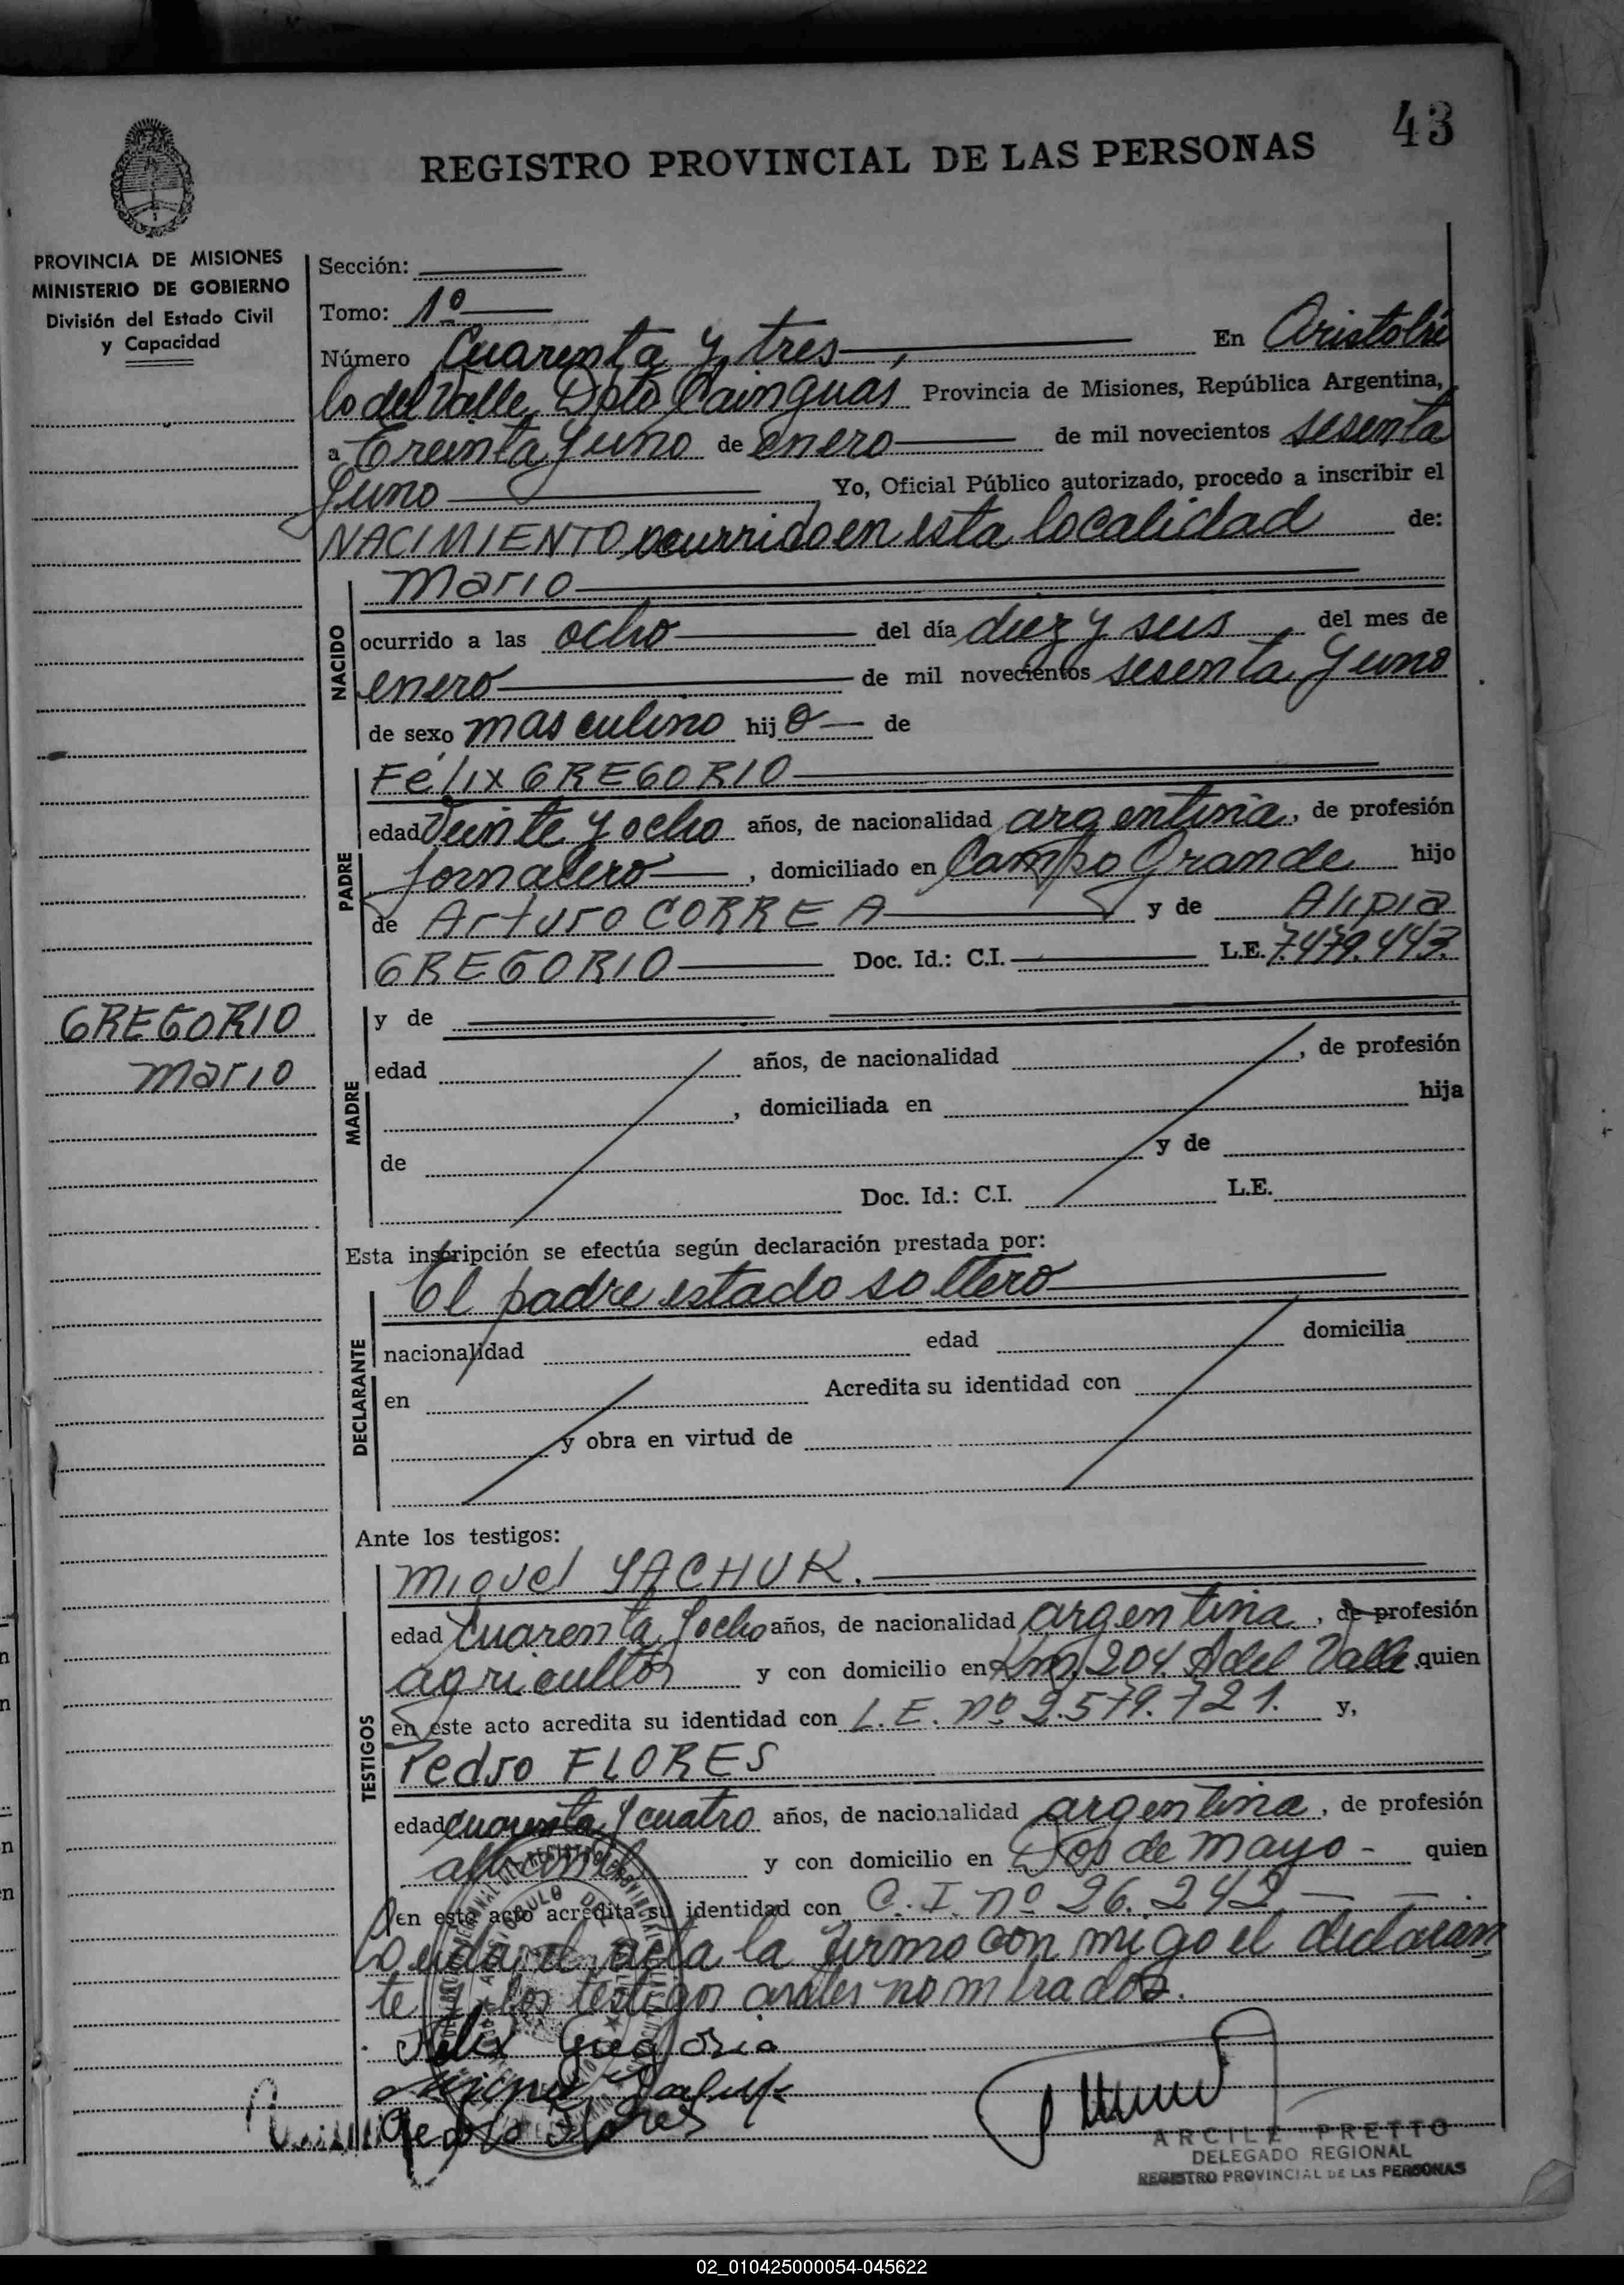 43
REGISTRO PROVINCIAL DE LAS PERSONAS
PROVINCIA DE MISIONES
MINISTERIO DE GOBIERNO
División del Estado Civil
y Capacidad
Sección:
Tomo: 1º
Número Cuarenta y tres, En Aristóbu
lo del Valle, Dpto Cainguas Provincia de Misiones, República Argentina,
a Treinta y uno de enero de mil novecientos sesenta
y uno Yo, Oficial Público autorizado, procedo a inscribir el
NACIMIENTO ocurrido en esta localidad de:
NACIDO
Mario
ocurrido a las ocho del día diez y seis del mes de
enero de mil novecientos sesenta y uno
de sexo masculino hij o de
PADRE
Félix GREGORIO
edad Veinte y ocho años, de nacionalidad argentina, de profesión
Jornalero, domiciliado en Campo Grande hijo
de Arturo CORREA y de Alipia
GREGORIO Doc. Id.: C.I. L.E. 7.479.443.
GREGORIO
Mario
MADRE
y de
edad años, de nacionalidad , de profesión
, domiciliada en hija
de y de
Doc. Id.: C.I. L.E.
Esta inscripción se efectúa según declaración prestada por:
DECLARANTE
El padre estado soltero
nacionalidad edad domicilia
en Acredita su identidad con
y obra en virtud de
Ante los testigos:
TESTIGOS
Miguel YACHUK.
edad Cuarenta y ocho años, de nacionalidad argentina, de profesión
agricultor y con domicilio en Km. 204 A del Valle quien
en este acto acredita su identidad con L.E. nº 2.579.721. y,
Pedro FLORES
edad cuarenta y cuatro años, de nacionalidad argentina, de profesión
y con domicilio en Dos de Mayo - quien
en este acto acredita su identidad con C.I. nº 26.242
Leida el acta la firmo con migo el declaran
te y los testigos antes nombrados.
Felix Gregorio
Pedro Flores
ARCILE PRETTO
DELEGADO REGIONAL
REGISTRO PROVINCIAL DE LAS PERSONAS
02_010425000054-045622